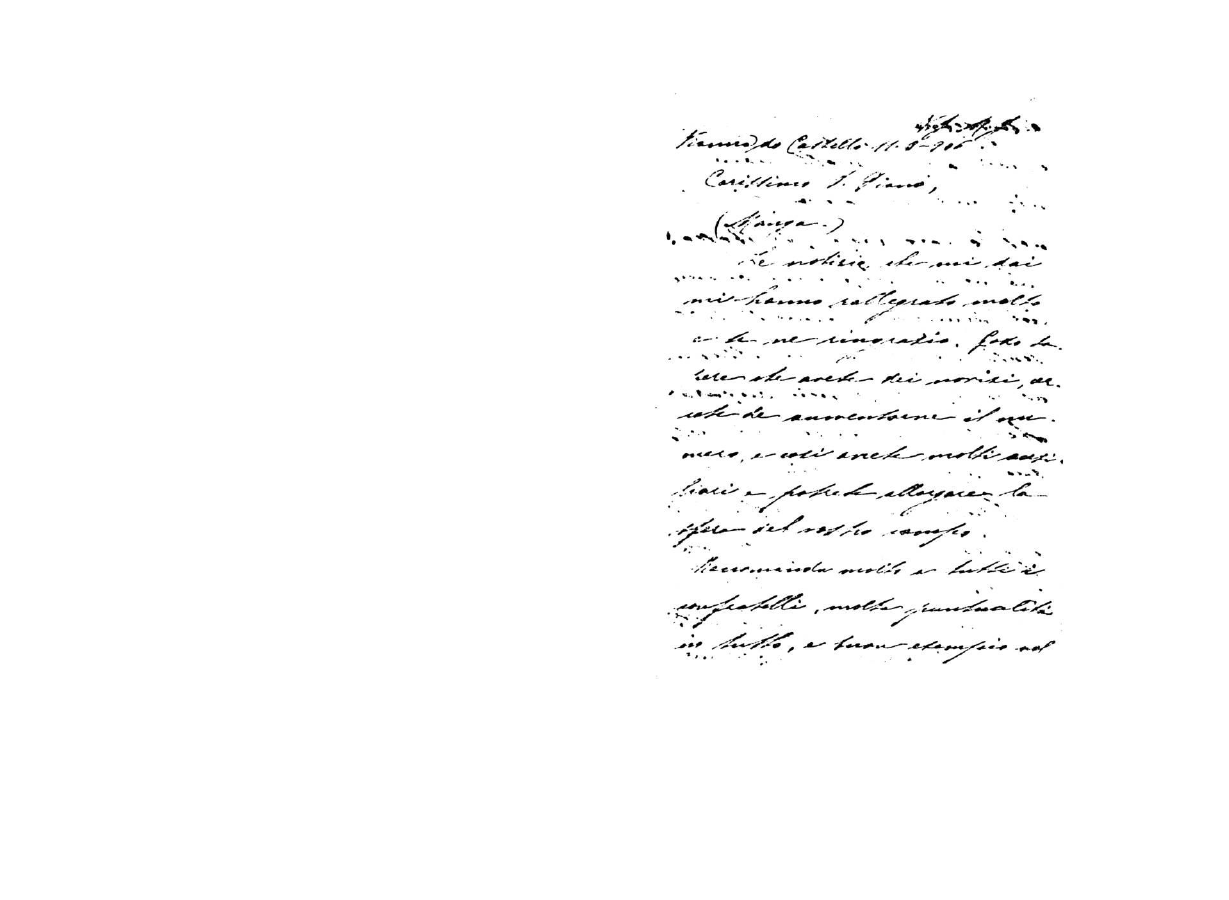 Vianna do Castello 11-8-906
Carissimo D. Pianó,
(Kanya.)
Le notizie che mi dai
mi hanno rallegrato molto
e te ne ringrazio. Godo sa-
pere che avete dei novizi, cer
cate de aumentarne il nu-
mero, e così anche molti aspi-
e potrete allargare la
sfera del vostro campo.
Raccomanda molto a tutti i
confratelli, molta puntualità
in tutto, e buon esempio nel